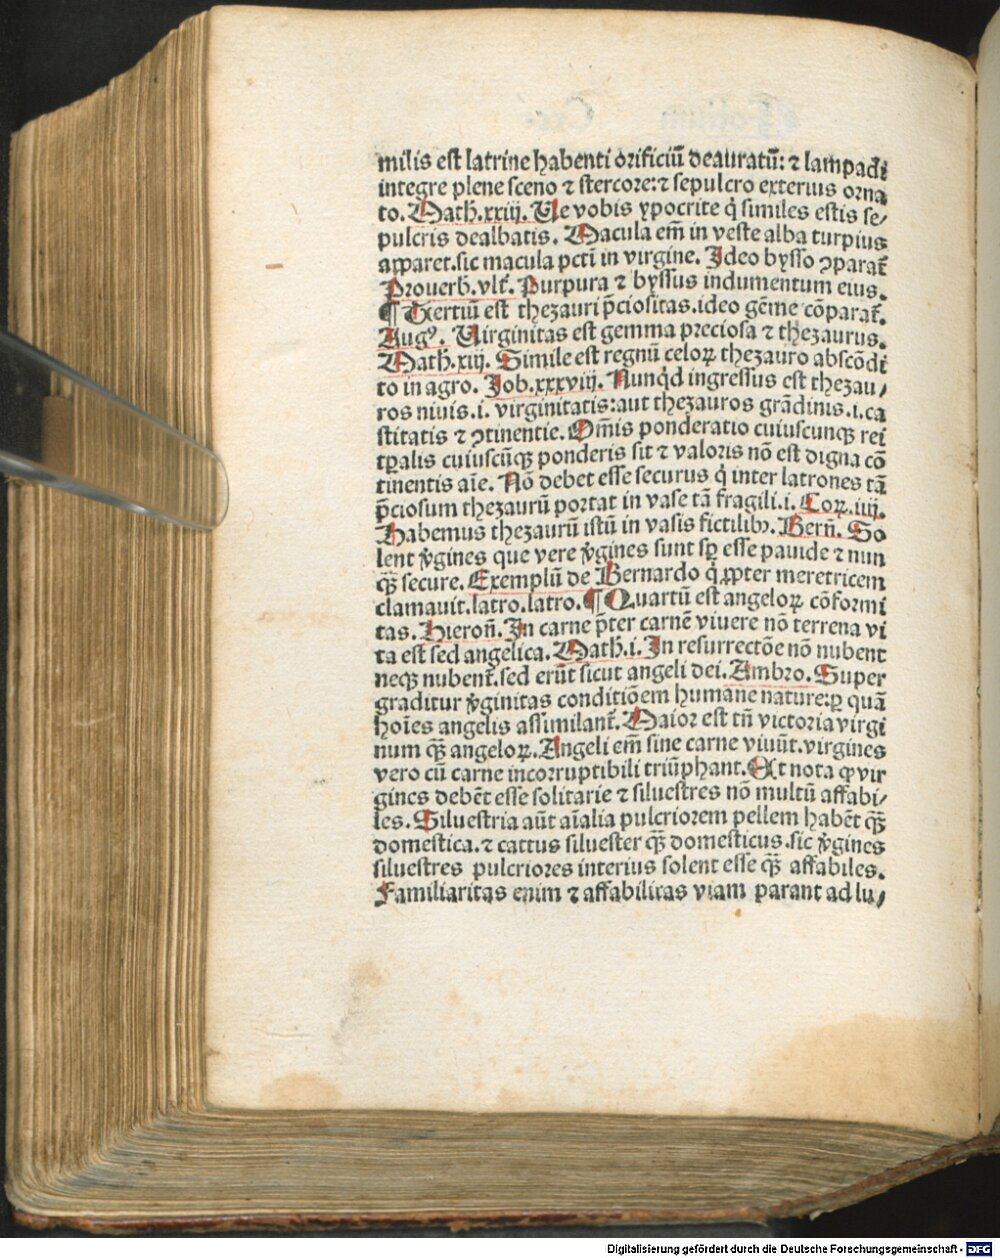 milis est latrine habenti orificiū deauratū: ⁊ lampadi
integre plene sceno ⁊ stercore: ⁊ sepulcro exterius orna
to. Math.xxiij. Ue vobis ypocrite q̇ similes estis se/
pulcris dealbatis. Macula em̄ in veste alba turpius
apparet.sic macula pcti in virgine. Ideo bysso ꝯparat̄
Prouerb̄. vlt̄. Purpura ⁊ byssus indumentum eius.
¶ Tertiū est thezauri p̄ciositas.ideo gēme cōparat̄.
Augꝰ. Uirginitas est gemma preciosa ⁊ thezaurus.
Math.xiij. Simile est regnū celoꝝ thezauro abscōdi
to in agro. Job.xxxviij. Nunq̇d ingressus est thezau/
ros niuis.i. virginitatis: aut thezauros grādinis.i.ca
stitatis ⁊ ꝯtinentie. Om̄is ponderatio cuiuscunqꝫ rei
tꝑalis cuiuscūqꝫ ponderis sit ⁊ valoris nō est digna cō
tinentis aīe. Nō debet esse securus q̇ inter latrones tā
p̄ciosum thezaurū portat in vase tā fragili.i. Coꝝ.iiij.
Habemus thezaurū istū in vasis fictilibꝰ. Berñ. So
lent v̇gines que vere v̇gines sunt sꝑ esse pauide ⁊ nun
qꝫ̄ secure. Exemplū de Bernardo q̇ ꝓpter meretricem
clamauit.latro.latro. ¶ Quartū est angeloꝝ cōformi
tas. Hieroñ. In carne p̄ter carnē viuere nō terrena vi
ta est sed angelica. Math.i. In resurrectōe nō nubent
neqꝫ nubent̄.sed erūt sicut angeli dei. Ambro. Super
graditur v̇ginitas conditiōem humane nature: ꝑ quā
hoīes angelis assimilant̄. Maior est tñ victoria virgi
num qꝫ̄ angeloꝝ. Angeli em̄ sine carne viuūt.virgines
vero cū carne incorruptibili triūphant. Et nota ꝙ vir
gines debēt esse solitarie ⁊ siluestres nō multū affabi/
les. Siluestria aūt aīalia pulcriorem pellem habēt qꝫ̄
domestica. ⁊ cattus siluester qꝫ̄ domesticus.sic v̇gines
siluestres pulcriores interius solent esse qꝫ̄ affabiles.
Familiaritas enim ⁊ affabilitas viam parant ad lu/
Digitalisierung gefördert durch die Deutsche Forschungsgemeinschaft - DFG